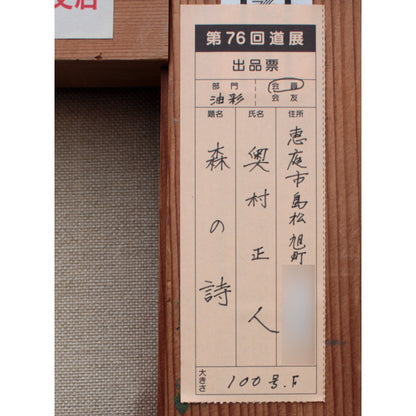 第76回道展
出品票
部門
油彩
会員
会友
住所
恵庭市島松旭町
氏名
奥村正人
題名
森の詩
大きさ
100号F